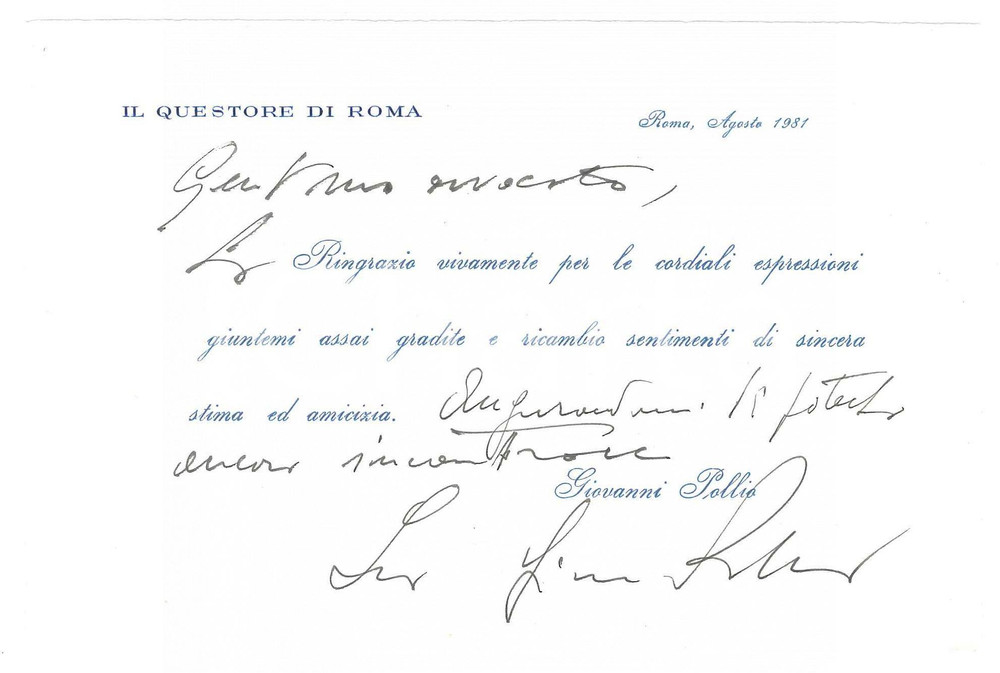 IL QUESTORE DI ROMA
Roma, Agosto 1981
avvocato,
La Ringrazio vivamente per le cordiali espressioni
giuntemi assai gradite e ricambio sentimenti di sincera
stima ed amicizia. Augurandomi di poterla
ancora incontrare
Giovanni Pollio
Suo